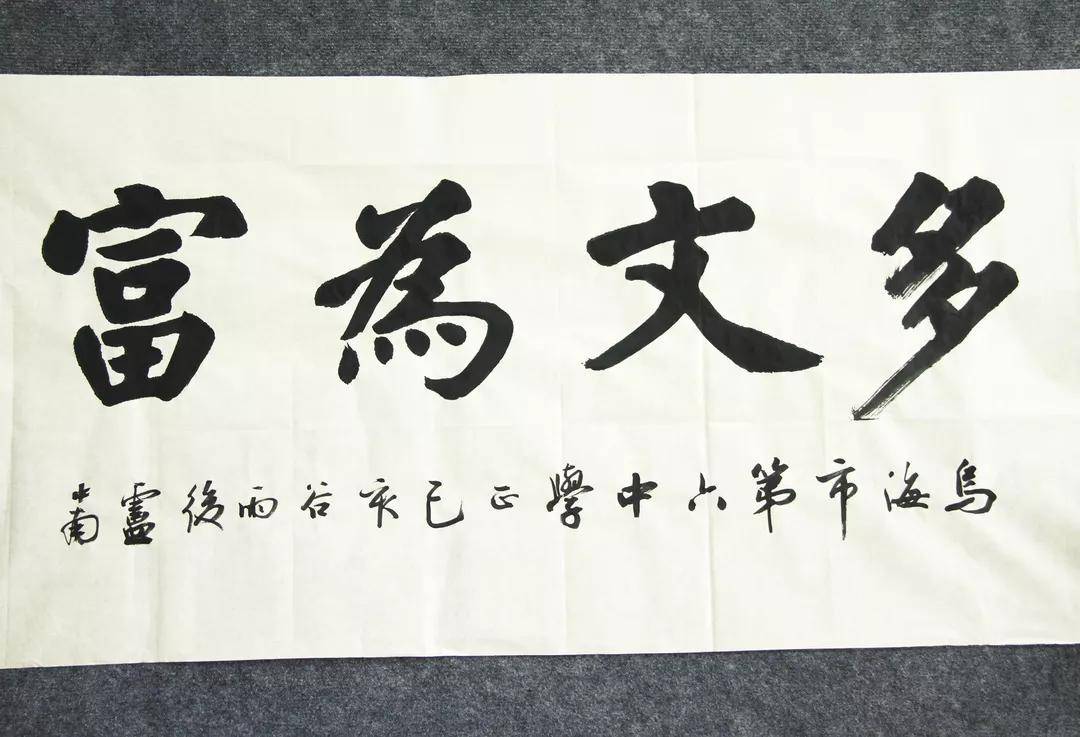 多文為富
烏海市第六中學正己亥谷雨後盧中南